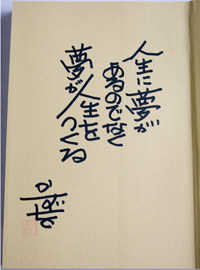 人生に夢が
あるのでなく
夢が人生を
つくる